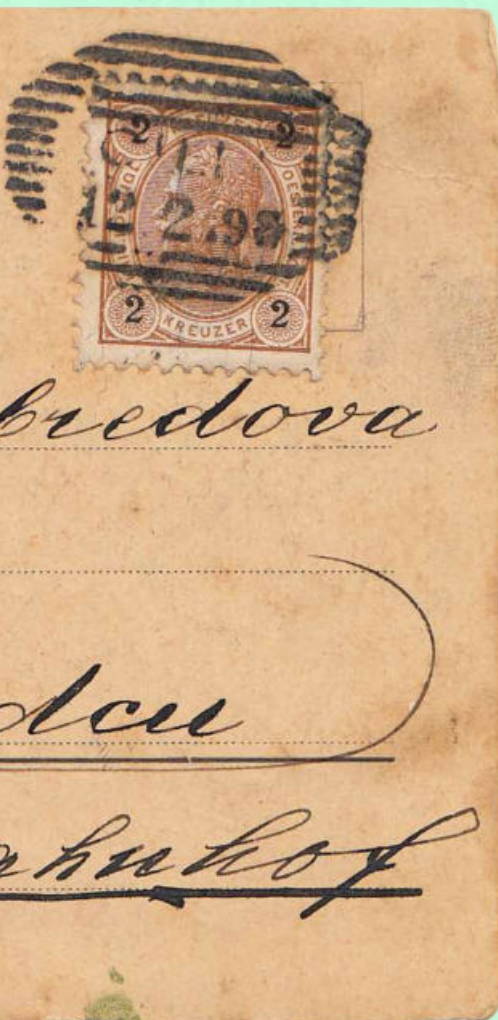 2 2
12 2 98
2 KREUZER 2
bredova
dcu
ahnhof